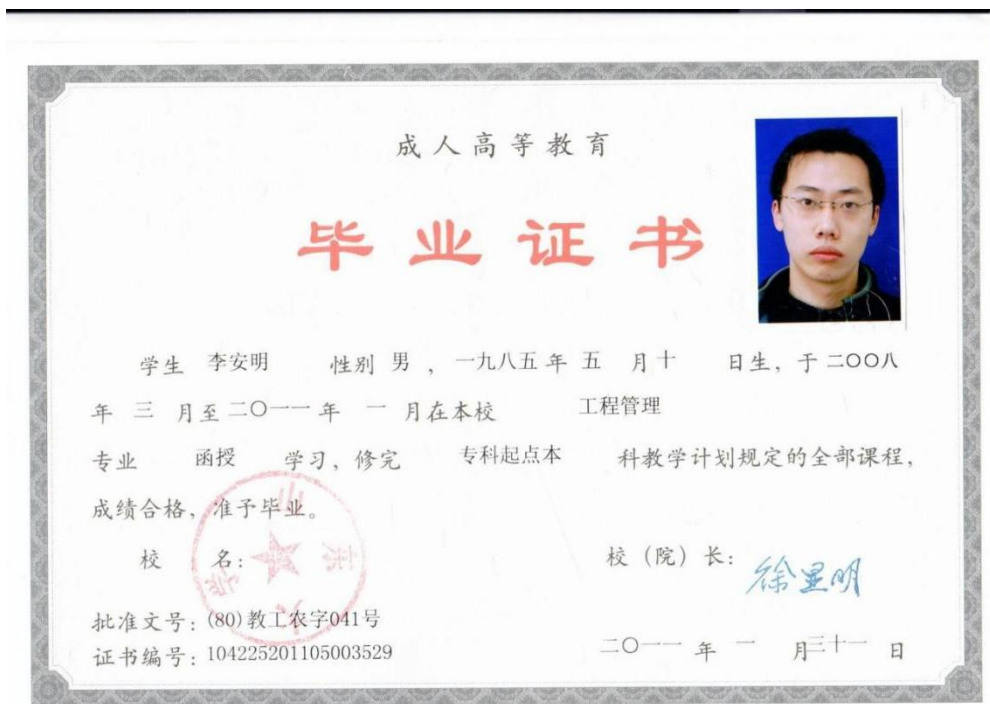 成人高等教育
毕业证书
学生 李安明 性别 男 ，一九八五年 五 月十 日生，于二〇〇八
年 三 月至二〇一一年 一 月在本校 工程管理
专业 函授 学习，修完 专科起点本 科教学计划规定的全部课程，
成绩合格，准予毕业。
校 名： 校（院）长：徐显明
山东大学
批准文号：(80)教工农字041号
证书编号：104225201105003529
二〇一一 年 一 月三十一 日